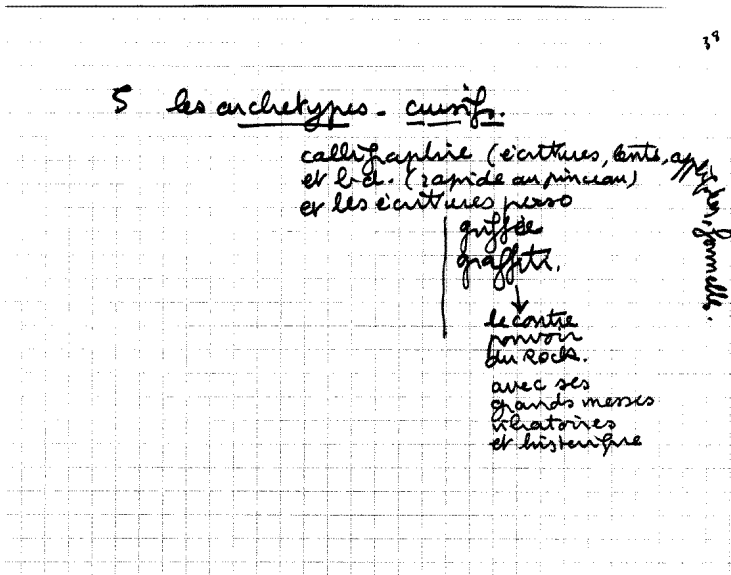 38
5 les archetypes - cursifs.
calligraphie (écritures, lente,
et b.d. (rapide au pinceau)
et les écritures perso
griffée
graffiti.
↓
le contre
pouvoir
du Rock.
avec ses
grands messes
vibratoires
et histerique
formelle.